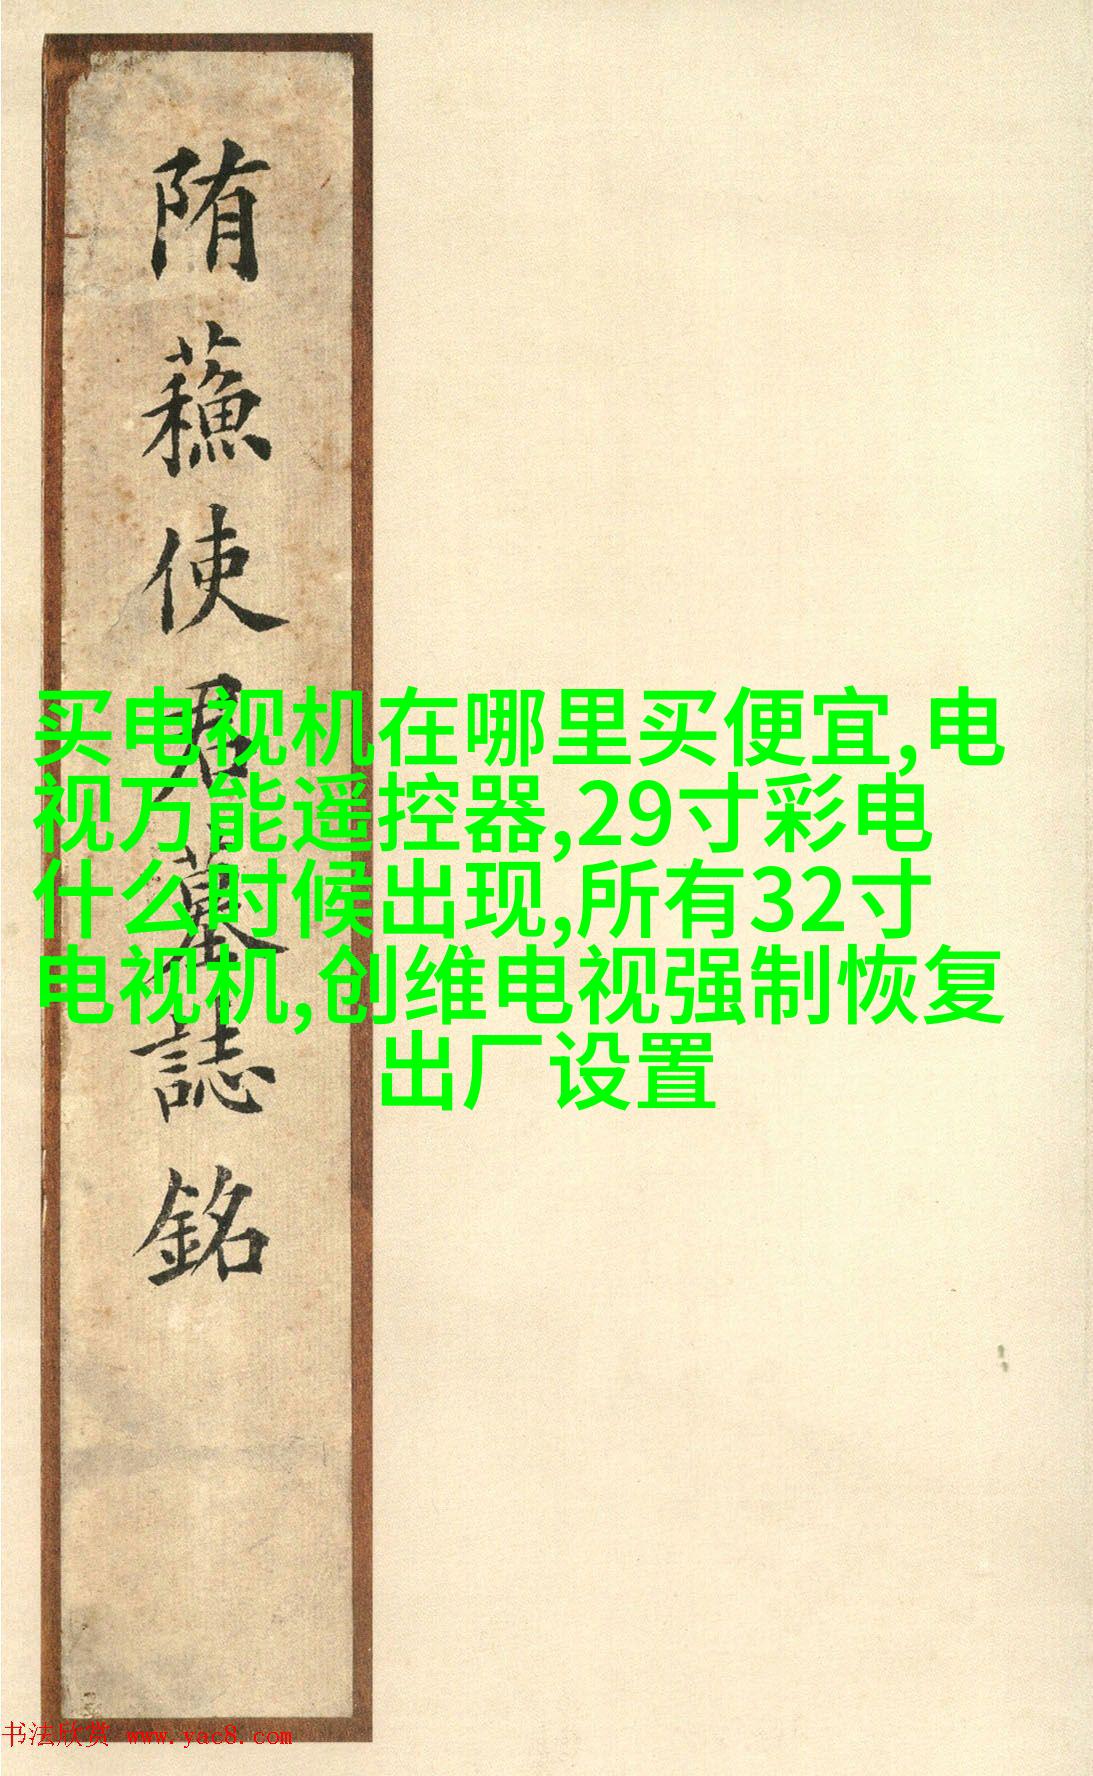 隋蘓使君墓誌銘
买电视机在哪里买便宜,电
视万能遥控器,29寸彩电
什么时候出现,所有32寸
电视机,创维电视强制恢复
出厂设置
书法欣赏 www.yac8.com